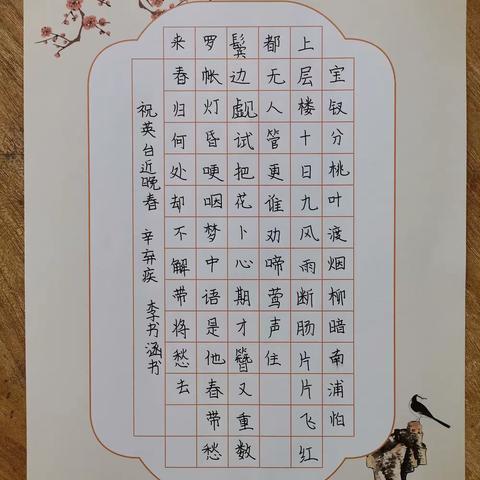 宝钗分桃叶渡烟柳暗南浦怕
上层楼十日九风雨断肠片片飞红
都无人管更谁劝啼莺声住
鬓边觑试把花卜心期才簪又重数
罗帐灯昏哽咽梦中语是他春带愁
来春归何处却不解带将愁去
祝英台近晚春 辛弃疾 李书涵书